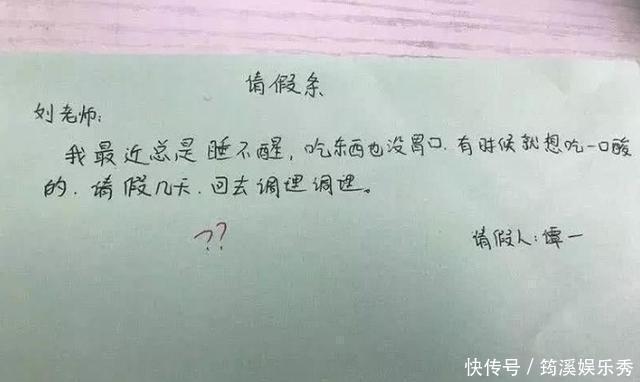 请假条
刘老师:
我最近总是睡不醒,吃东西也没胃口.有时候就想吃一口酸
的.请假几天.回去调理调理。
??
请假人:谭一
快传号/筠溪娱乐秀